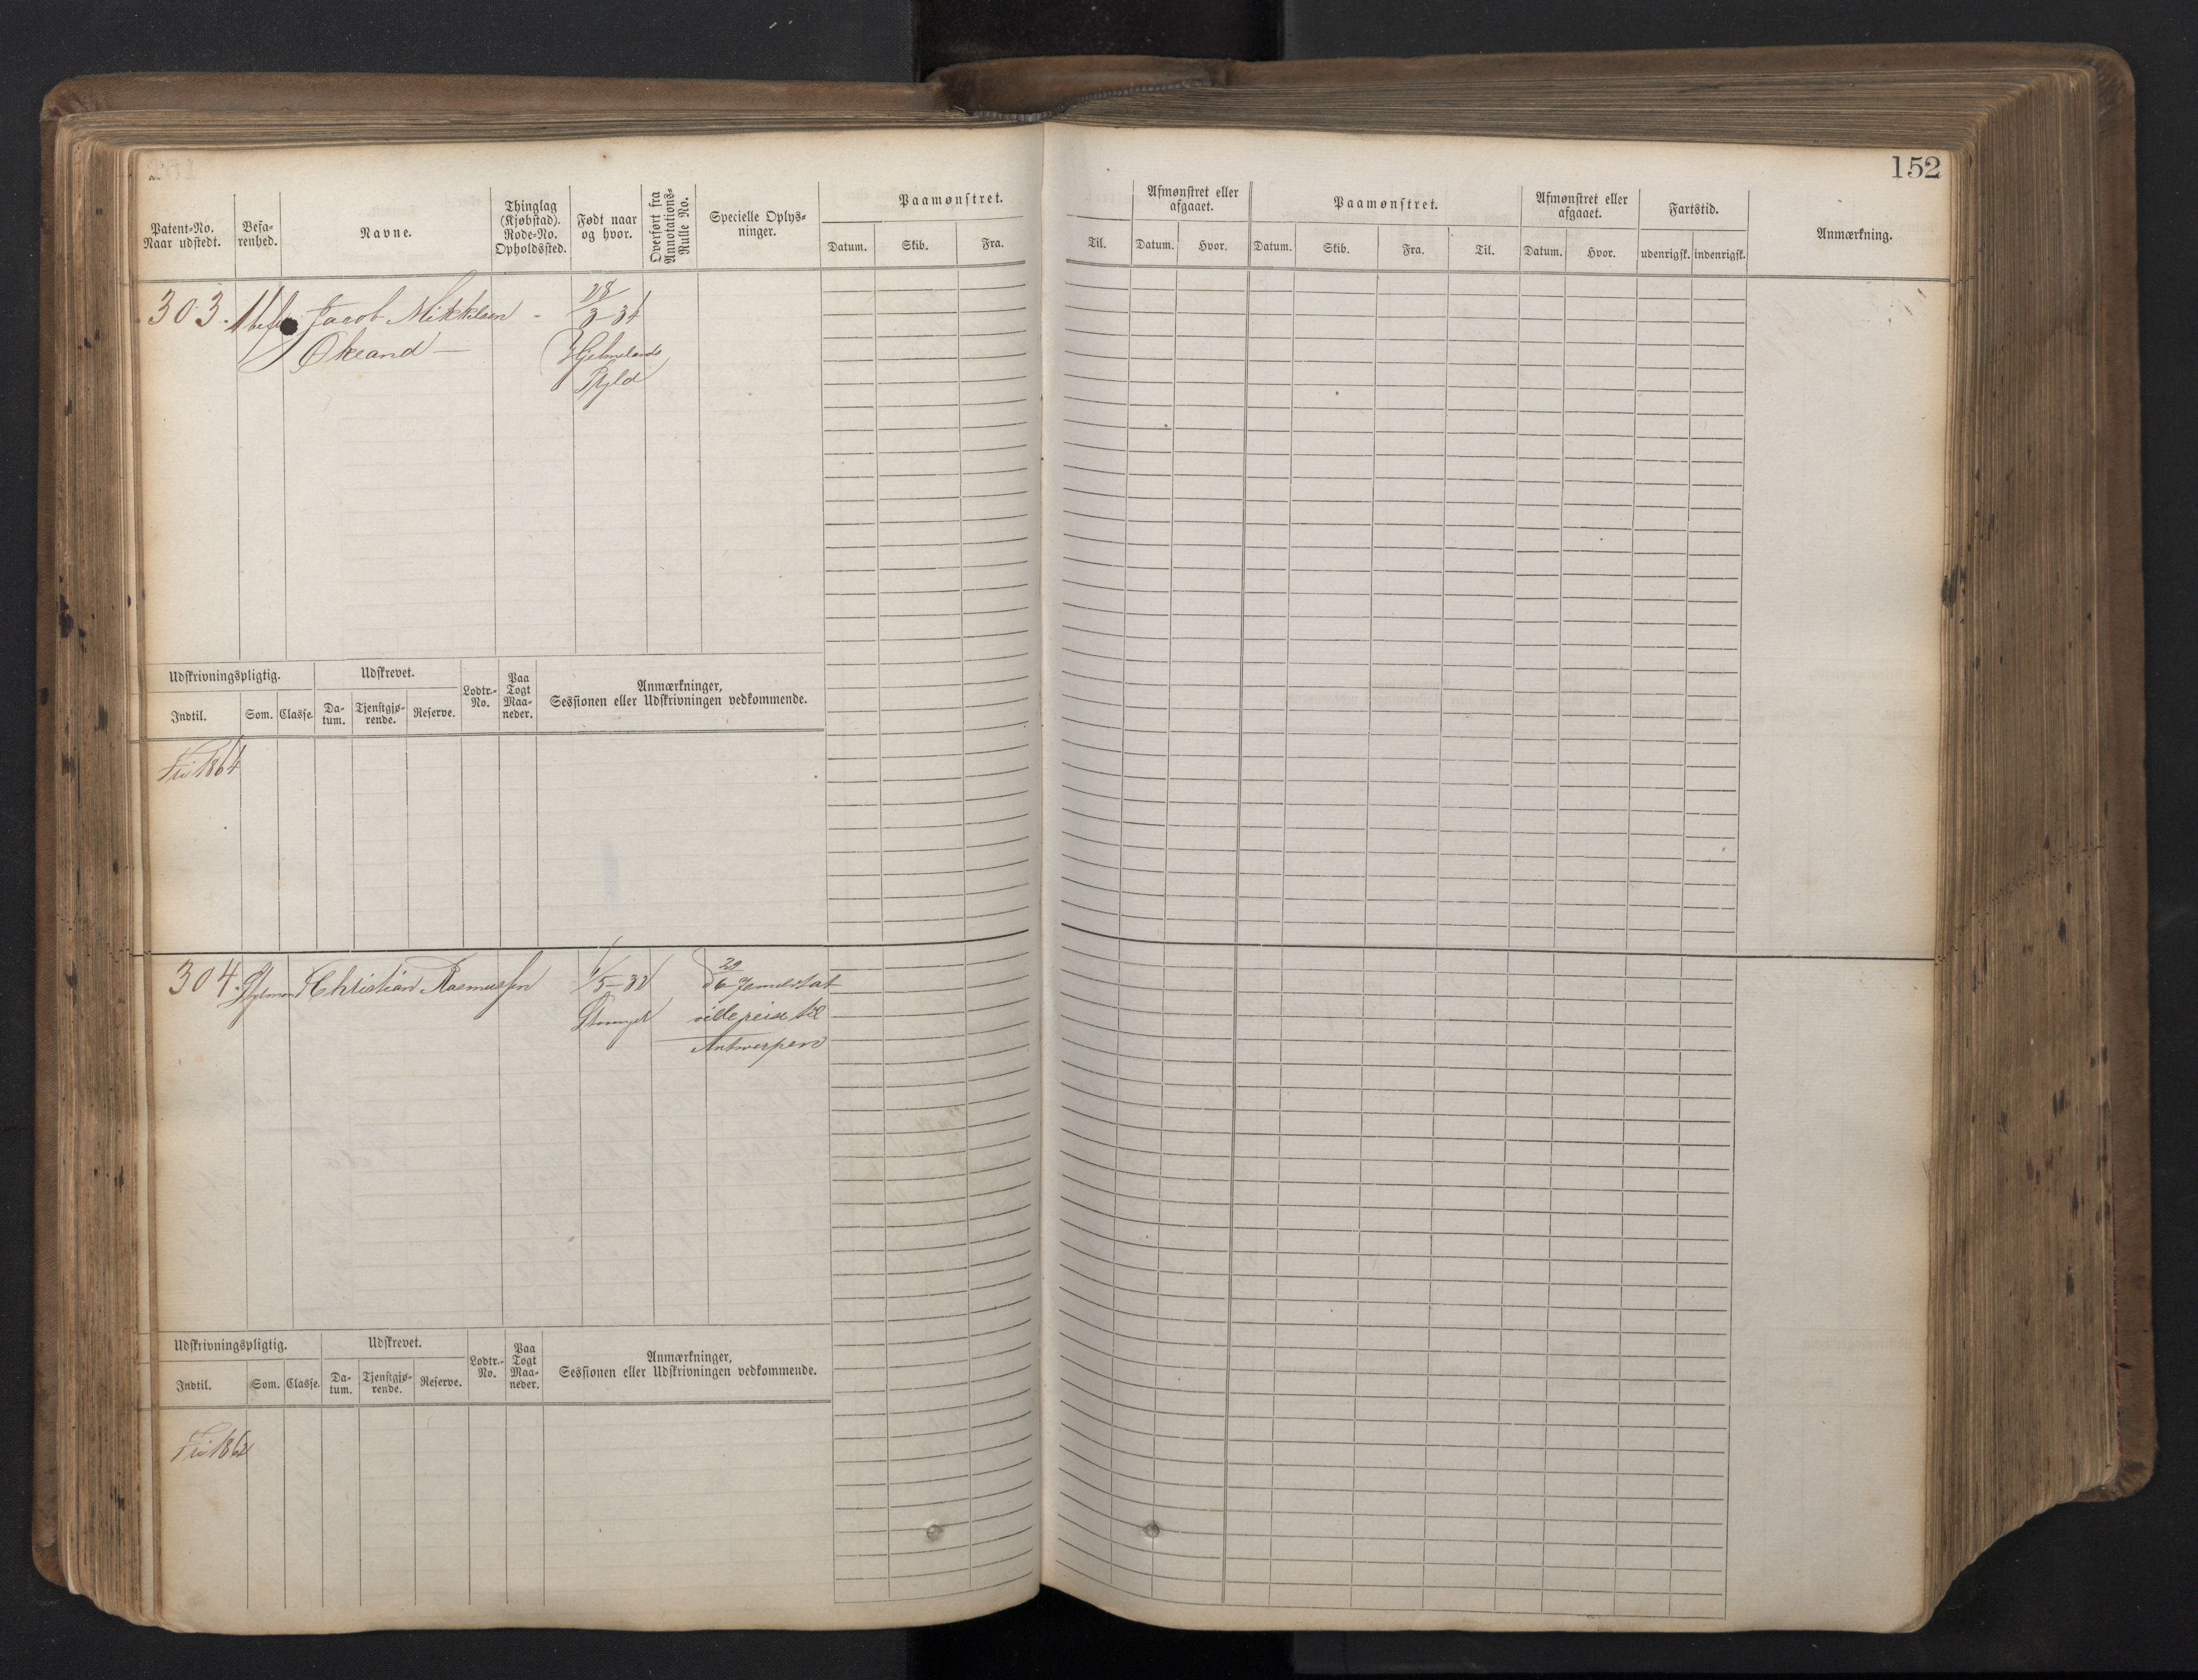 152
Patent-No.
Naar udstedt.
Befa-
renhed.
Navne.
Thinglag
(Kjøbstad).
Rode-No.
Opholdssted.
Født naar
og hvor.
Overført fra
Annotations-
Rulle No.
Specielle Oplys-
ninger.
Paamønstret.
Datum. Skib. Fra.
Til.
Afmønstret eller
afgaaet.
Datum. Hvor.
Paamønstret.
Datum. Skib. Fra. Til.
Afmønstret eller
afgaaet.
Datum. Hvor.
Fartstid.
udenrigsk. indenrigsk.
Anmærkning.
303. Jacob Mikkelsen - 28/3-34
Økeand — Hjelmelands
Udskrivningspligtig. Udskrevet.
Indtil. Som. Classe. Da-
tum. Tjenstgjø-
rende. Reserve.
Lodtr.-
No.
Paa
Togt
Maa-
neder.
Anmærkninger,
Sessionen eller Udskrivningen vedkommende.
Fri 1864
304. Christian Rasmussen 1/5-32 29/6
at
ville reise til
Antwerpen
Udskrivningspligtig. Udskrevet.
Indtil. Som. Classe. Da-
tum. Tjenstgjø-
rende. Reserve.
Lodtr.-
No.
Paa
Togt
Maa-
neder.
Anmærkninger,
Sessionen eller Udskrivningen vedkommende.
Fri